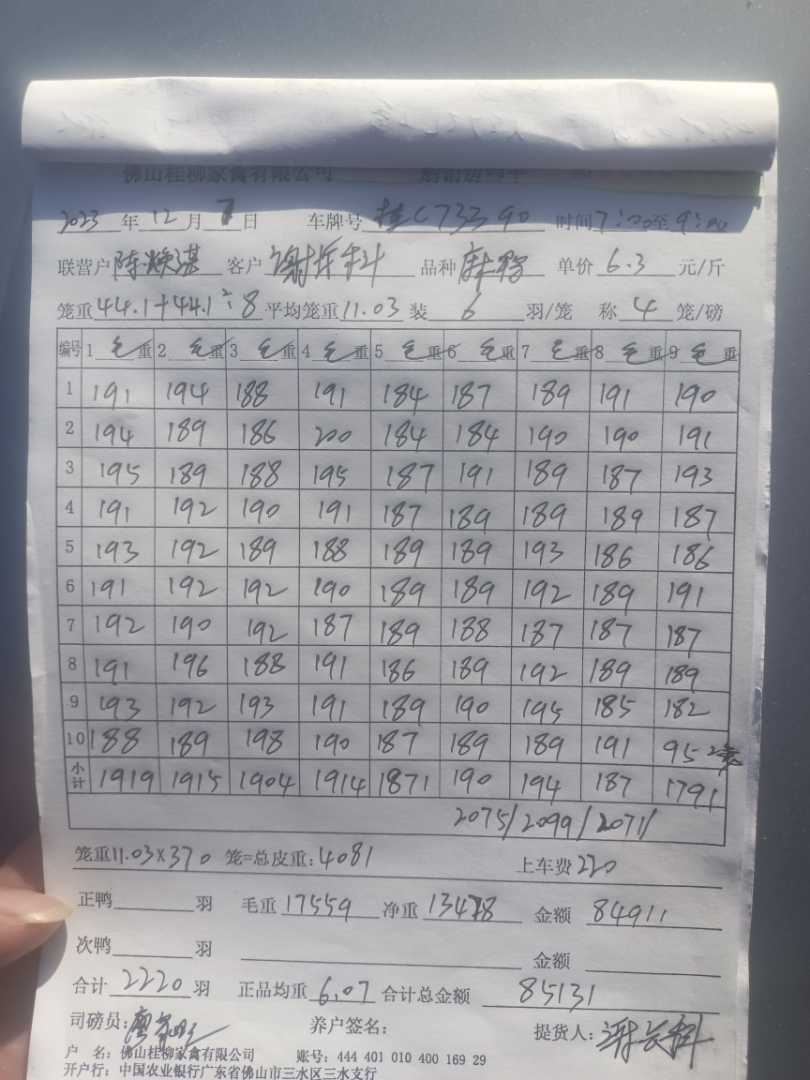 佛山桂柳家禽有限公司
2023 年 12 月 7 日 车牌号 桂C73390 时间 7:00 至 9:00
联营户 陈焕谋 客户 谢长科 品种 麻鸭 单价 6.3 元/斤
笼重 44.1+44.1÷8 平均笼重 11.03 装 6 羽/笼 称 4 笼/磅
编号 1 毛重 2 毛重 3 毛重 4 毛重 5 毛重 6 毛重 7 毛重 8 毛重 9 毛重
1 191 194 188 191 184 187 189 191 190
2 194 189 186 200 184 184 190 190 191
3 195 189 188 195 187 191 189 187 193
4 191 192 190 191 187 189 189 189 187
5 193 192 189 188 189 189 193 186 186
6 191 192 192 190 189 189 192 189 191
7 192 190 192 187 189 188 187 187 187
8 191 196 188 191 186 189 192 189 189
9 193 192 193 191 189 190 195 185 182
10 188 189 198 190 187 189 189 191 95 2笼
小计 1919 1915 1904 1914 1871 190 194 187 1791
2075/ 2099/ 2071/
笼重 11.03×370 笼=总皮重: 4081 上车费 220
正鸭 羽 毛重 17559 净重 13478 金额 84911
次鸭 羽 金额
合计 2220 羽 正品均重 6.07 合计总金额 85131
司磅员: 养户签名: 提货人: 谢长科
户 名: 佛山桂柳家禽有限公司 账号: 444 401 010 400 169 29
开户行: 中国农业银行广东省佛山市三水区三水支行